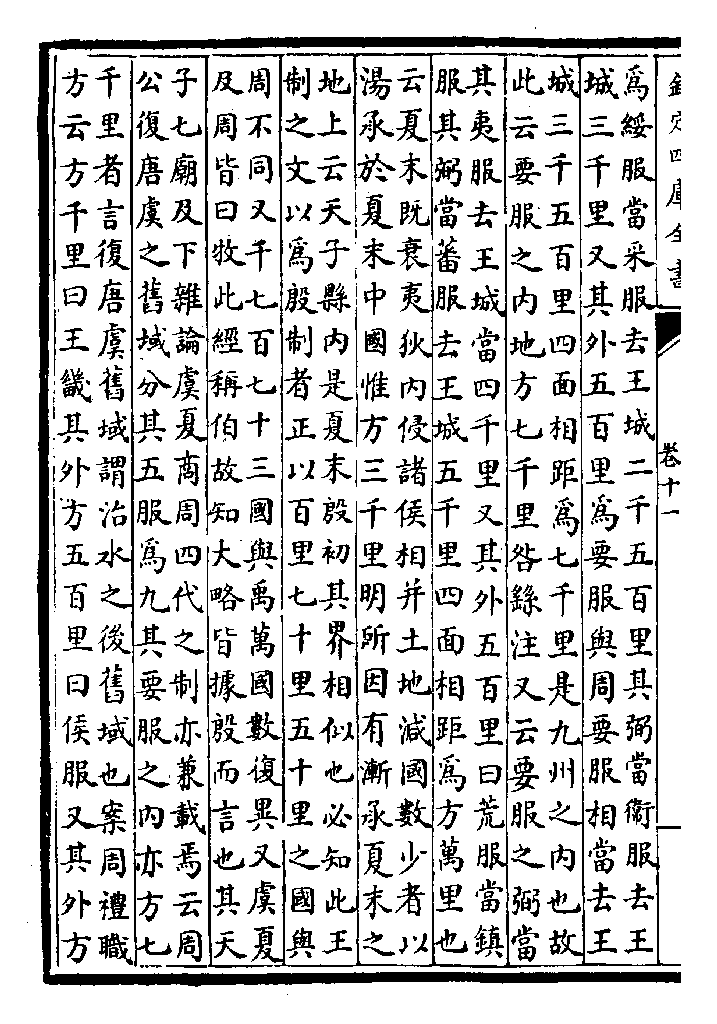 欽定四庫全書
卷十一
爲綏服當采服去王城二千五百里其弼當衛服去王
城三千里又其外五百里爲要服與周要服相當去王
城三千五百里四面相距爲七千里是九州之内也故
此云要服之内地方七千里咎繇注又云要服之弼當
其夷服去王城當四千里又其外五百里曰荒服當鎮
服其弼當蕃服去王城五千里四面相距爲方萬里也
云夏末既衰夷狄内侵諸侯相并土地減國數少者以
湯承於夏末中國惟方三千里明所因有漸承夏末之
地上云天子縣内是夏末殷初其界相似也必知此王
制之文以爲殷制者正以百里七十里五十里之國與
周不同又千七百七十三國與禹萬國數復異又虞夏
及周皆曰牧此經稱伯故知大略皆據殷而言也其天
子七廟及下雜論虞夏商周四代之制亦兼載焉云周
公復唐虞之舊域分其五服爲九其要服之内亦方七
千里者言復唐虞舊域謂治水之後舊域也案周禮職
方云方千里曰王畿其外方五百里曰侯服又其外方